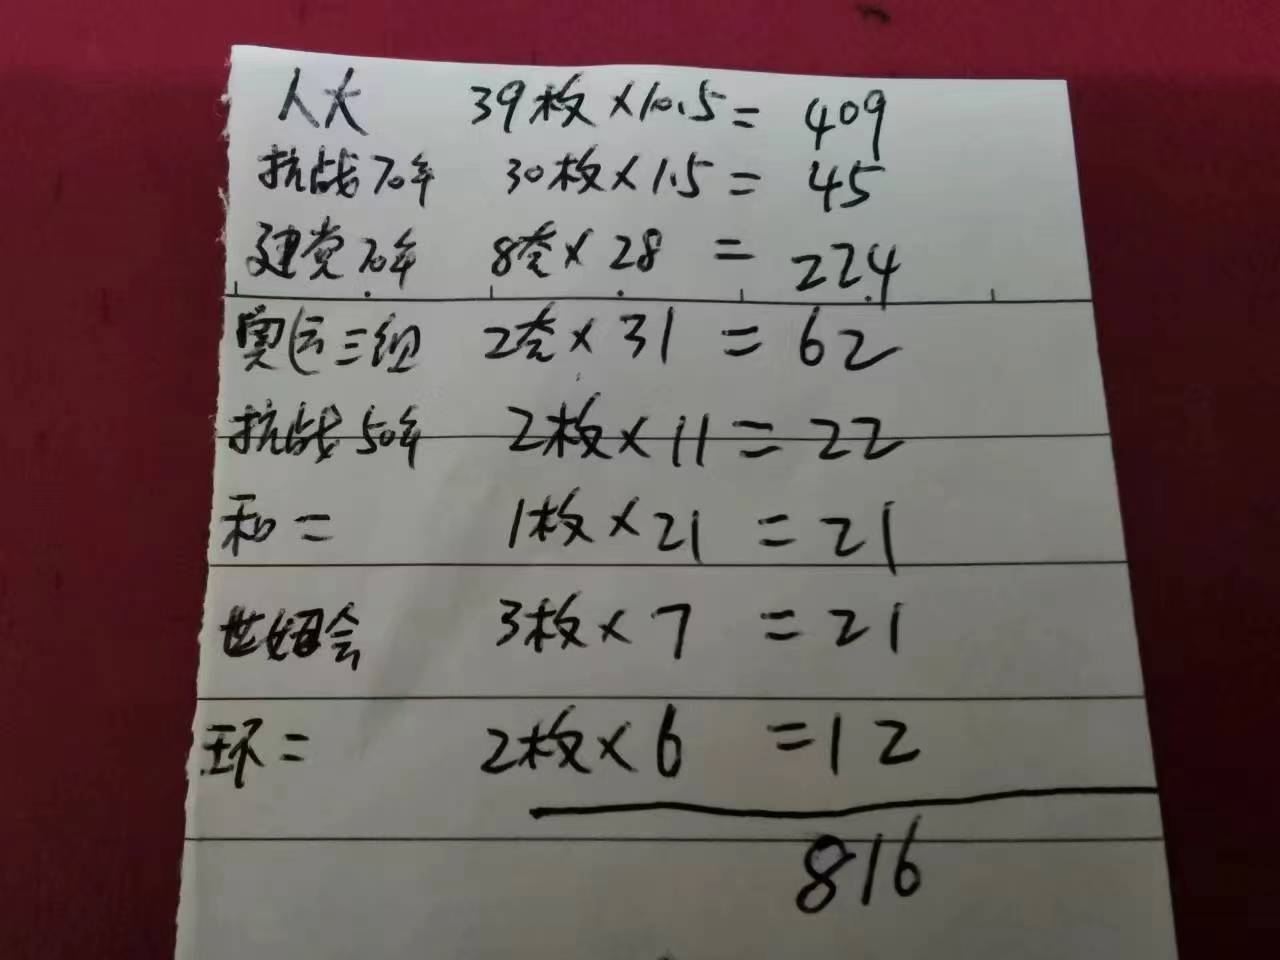 人大 39枚×10.5= 409
抗战70年 30枚×1.5= 45
建党70年 8套×28 = 224
奥运三组 2套×31 = 62
抗战50年 2枚×11= 22
和二 1枚×21 = 21
世妇会 3枚×7 = 21
环二 2枚×6 =12
816